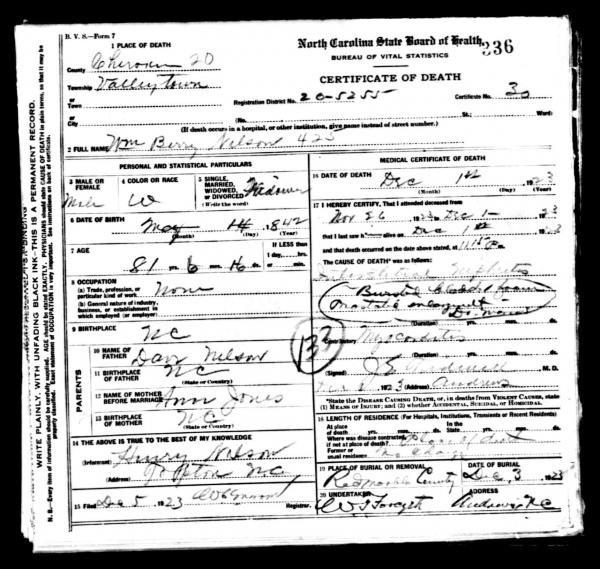 B. V. S.—Form 7
North Carolina State Board of Health
336
BUREAU OF VITAL STATISTICS
CERTIFICATE OF DEATH
1 PLACE OF DEATH
County Cherokee 20
Township Valleytown
or
Town
or
City
Registration District No. 20-5255 Certificate No. 30
(No. St.; Ward)
(If death occurs in a hospital, or other institution, give name instead of street number.)
2 FULL NAME Wm Berry Nelson 425
PERSONAL AND STATISTICAL PARTICULARS
3 MALE OR FEMALE Male
4 COLOR OR RACE W
5 SINGLE, MARRIED, WIDOWED, OR DIVORCED (Write the word) Widower
6 DATE OF BIRTH May 14, 1842
(Month) (Day) (Year)
7 AGE
81 yrs. 6 mos. 16 ds.
If LESS than 1 day, hrs. or min.
8 OCCUPATION
(a) Trade, profession, or particular kind of work None
(b) General nature of industry, business, or establishment in which employed (or employer)
9 BIRTHPLACE NC
PARENTS
10 NAME OF FATHER Dave Nelson
11 BIRTHPLACE OF FATHER NC
(State or Country)
12 NAME OF MOTHER BEFORE MARRIAGE Ann Jones
13 BIRTHPLACE OF MOTHER NC
(State or Country)
14 THE ABOVE IS TRUE TO THE BEST OF MY KNOWLEDGE
(Informant) Henry Nelson
(Address) Topton NC
15 Filed Dec 5 1923
Registrar.
MEDICAL CERTIFICATE OF DEATH
16 DATE OF DEATH Dec 1st 1923
(Month) (Day) (Year)
17 I HEREBY CERTIFY, That I attended deceased from
Nov 26 1923 to Dec 1 1923
that I last saw h alive on Dec 1st 1923
and that death occurred on the date above stated, at
The CAUSE OF DEATH* was as follows:
Nephritis
Prostatic
(Duration) yrs. mos. ds.
133
Contributory Myocarditis
(Duration) yrs. mos. ds.
(Signed) M. D.
1923 (Address) Andrews
*State the DISEASE CAUSING DEATH, or, in deaths from VIOLENT CAUSES, state (1) MEANS OF INJURY; and (2) whether ACCIDENTAL, SUICIDAL, OR HOMICIDAL.
18 LENGTH OF RESIDENCE (For Hospitals, Institutions, Transients or Recent Residents)
At place of death yrs. mos. ds. In the State yrs. mos. ds.
Where was disease contracted, if not at place of death? Place of death
Former or usual residence
19 PLACE OF BURIAL OR REMOVAL
DATE OF BURIAL
County Dec 3, 1923
20 UNDERTAKER
ADDRESS
Andrews NC
WRITE PLAINLY, WITH UNFADING BLACK INK—THIS IS A PERMANENT RECORD.
N. B.—Every item of information should be carefully supplied. AGE should be stated EXACTLY. PHYSICIANS should state CAUSE OF DEATH in plain terms, so that it may be properly classified. Exact statement of OCCUPATION is very important. See instructions on back of certificate.